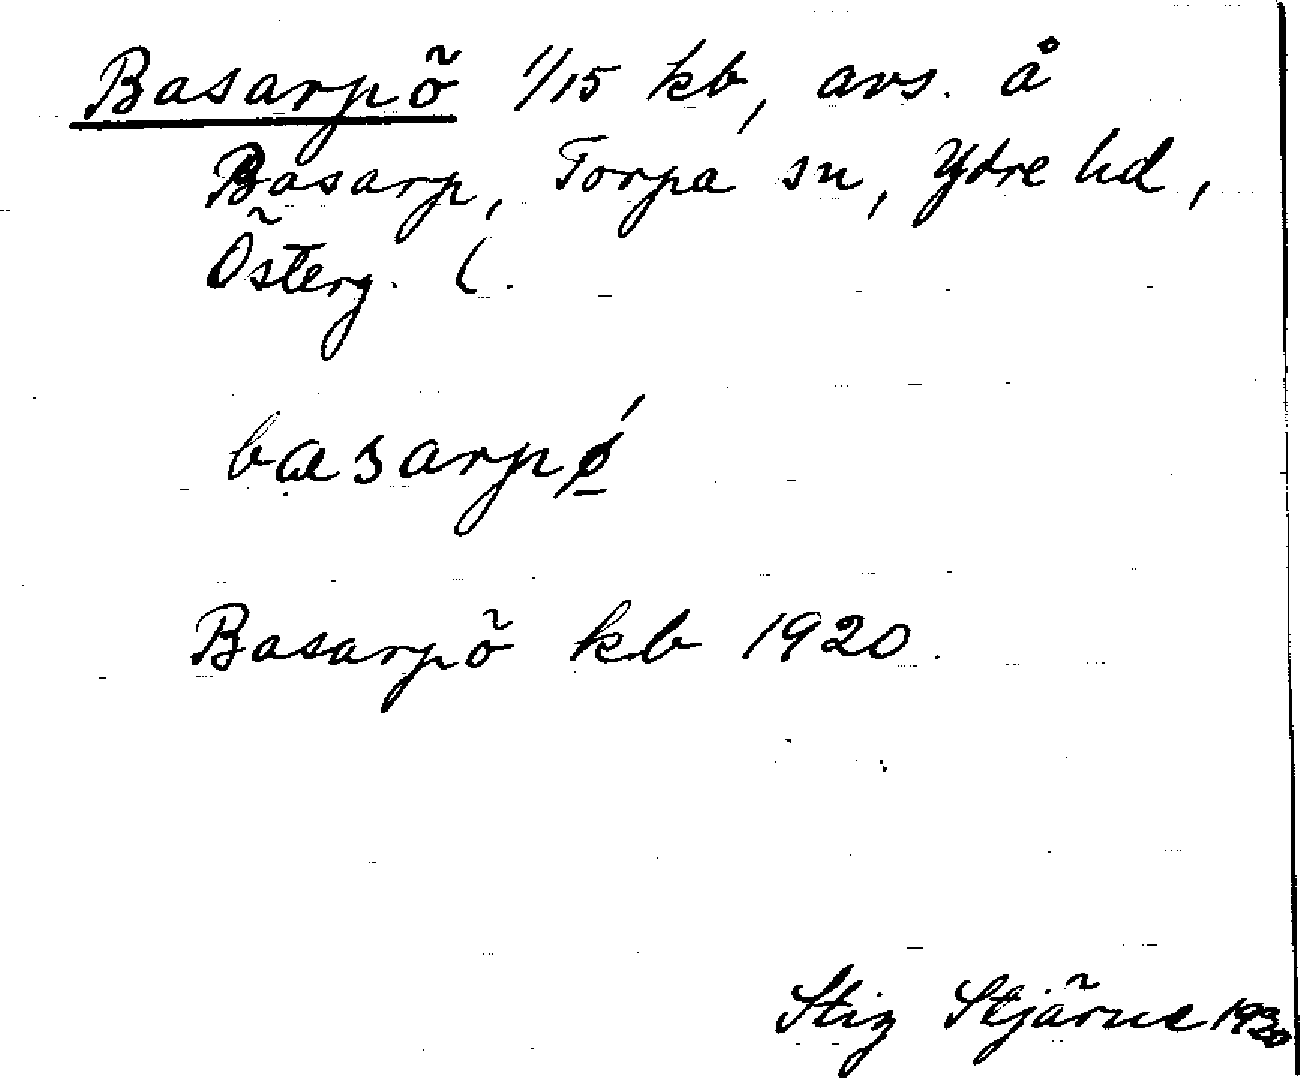 Basarpö 1/15 kb, avs. å
Basarp, Torpa sn, Ydre hd,
Österg. (.
basarpǿ
Basarpö kb 1920.
Stig Stjärne 1930